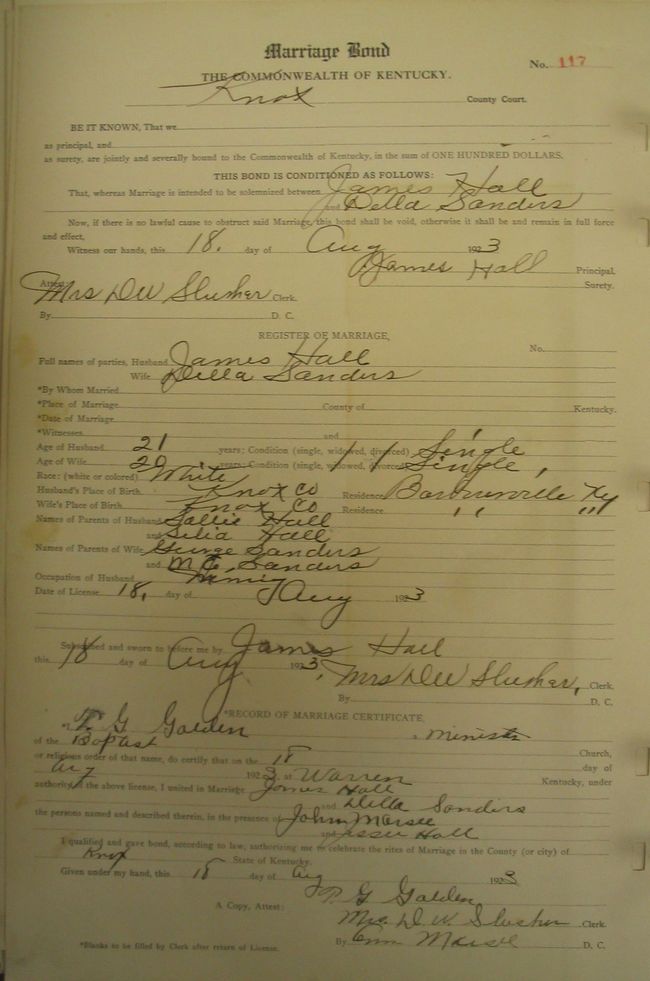 Marriage Bond
No. 117
THE COMMONWEALTH OF KENTUCKY.
Knox County Court.
BE IT KNOWN, That we
as principal, and
as surety, are jointly and severally bound to the Commonwealth of Kentucky, in the sum of ONE HUNDRED DOLLARS.
THIS BOND IS CONDITIONED AS FOLLOWS:
That, whereas Marriage is intended to be solemnized between James Hall
and Della Sanders
Now, if there is no lawful cause to obstruct said Marriage, this bond shall be void, otherwise it shall be and remain in full force
and effect,
Witness our hands, this 18. day of Aug 1923
James Hall Principal.
Attest: Surety.
Mrs D W Slusher Clerk.
By D. C.
REGISTER OF MARRIAGE,
No.
Full names of parties, Husband James Hall
Wife Della Sanders
*By Whom Married
*Place of Marriage County of Kentucky.
*Date of Marriage
*Witnesses and
Age of Husband 21 years; Condition (single, widowed, divorced) Single
Age of Wife 20 years; Condition (single, widowed, divorced) Single
Race: (white or colored) White
Husband's Place of Birth Knox Co Residence Barbourville Ky
Wife's Place of Birth Knox Co Residence " "
Names of Parents of Husband Hall
and Hall
Names of Parents of Wife George Sanders
and Sanders
Occupation of Husband
Date of License 18, day of Aug 1923
Subscribed and sworn to before me by James Hall
this 18 day of Aug 1923,
Mrs D W Slusher, Clerk.
By D. C.
*RECORD OF MARRIAGE CERTIFICATE,
*I, G Golden a minister
of the Baptist Church,
or religious order of that name, do certify that on the 18 day of
Aug 1923 at Warren Kentucky, under
authority of the above license, I united in Marriage James Hall
and Della Sanders
the persons named and described therein, in the presence of John Marsee
and Jessee Hall
I qualified and gave bond, according to law, authorizing me to celebrate the rites of Marriage in the County (or city) of
Knox State of Kentucky.
Given under my hand, this 18 day of Aug 1923
G Golden
A Copy, Attest: Mrs. D. W. Slusher Clerk.
By Marsee D. C.
*Blanks to be filled by Clerk after return of License.